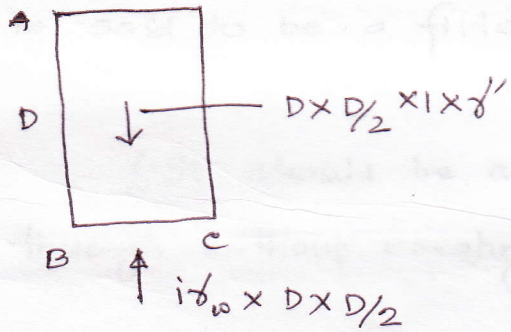 A
D
D × D/2 × 1 × γ'
B
C
iγw × D × D/2